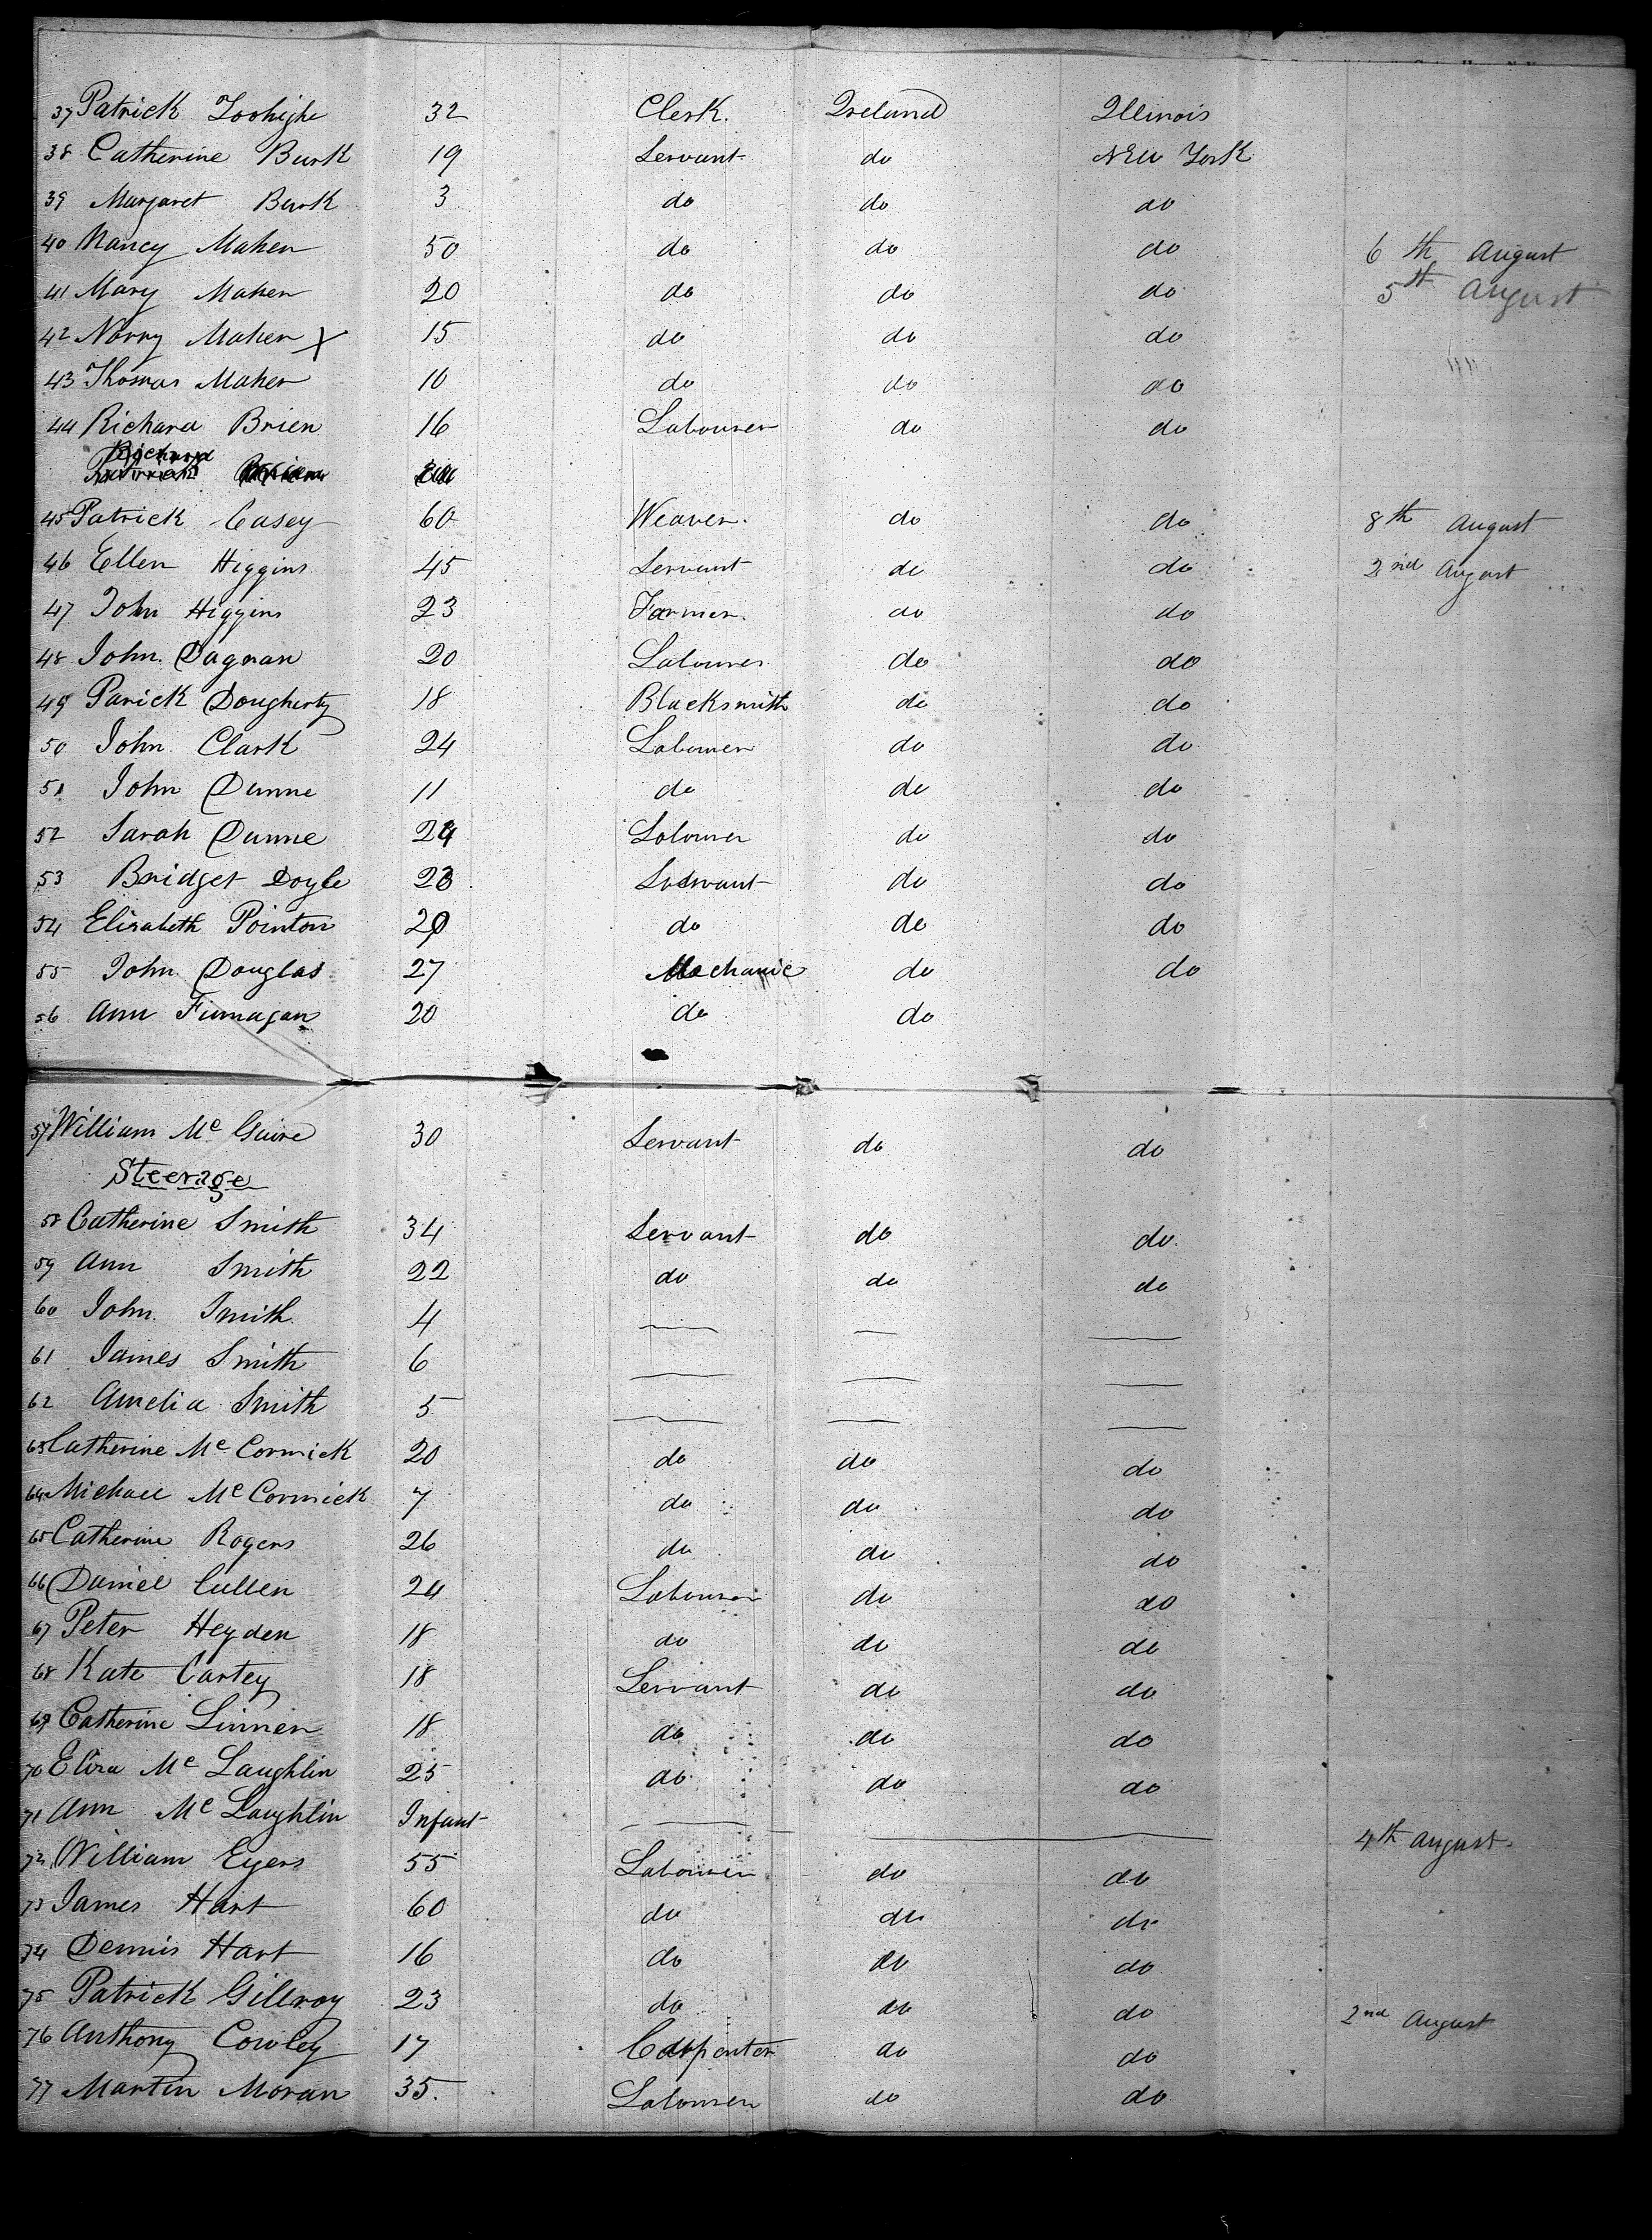 37 Patrick Toohighe 32 Clerk. Ireland Illinois
38 Catherine Burk 19 Servant do New York
39 Margaret Burk 3 do do do
40 Nancy Maher 50 do do do 6th August
41 Mary Maher 20 do do do 5th August
42 Norry Maher X 15 do do do
43 Thomas Maher 10 do do do
44 Richard Brien 16 Labourer do do
Richard
45 Patrick Casey 60 Weaver. do do 8th August
46 Ellen Higgins 45 Servant do do 2nd August
47 John Higgins 23 Farmer. do do
48 John. Dagnan 20 Labourer do do
49 Parick Dougherty 18 Blacksmith do do
50 John. Clark 24 Labourer do do
51 John Dunne 11 do do do
52 Sarah Dunne 24 Labourer do do
53 Bridget Doyle 23 Servant do do
54 Elisabeth Pointon 20 do do do
55 John Douglas 27 Mechanic do do
56 Ann Finnagan 20 do do
57 William Mc Guire 30 Servant do do
Steerage
58 Catherine Smith 34 Servant do do
59 Ann Smith 22 do do do
60 John. Smith 4
61 James Smith 6
62 Amelia Smith 5
63 Catherine Mc Cormick 20 do do do
64 Michael Mc Cormick 7 do do do
65 Catherine Rogers 26 do do do
66 Daniel Cullen 24 Labourer do do
67 Peter Heyden 18 do do do
68 Kate Cartey 18 Servant do do
69 Catherine Linnen 18 do do do
70 Eliza Mc Laughlin 25 do do do
71 Ann Mc Laughlin Infant 4th August
72 William Eyers 55 Labourer do do
73 James Hart 60 do do do
74 Dennis Hart 16 do do do
75 Patrick Gillroy 23 do do do 2nd August
76 Anthony Cowley 17 Carpenter do do
77 Martin Moran 35. Labourer do do